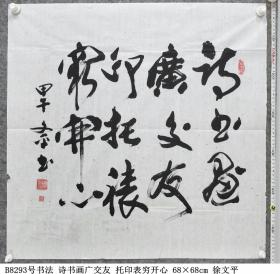 诗书画
广交友
印托裱
穷开心
甲午 文平书
B8293号书法 诗书画广交友 托印表穷开心 68×68cm 徐文平